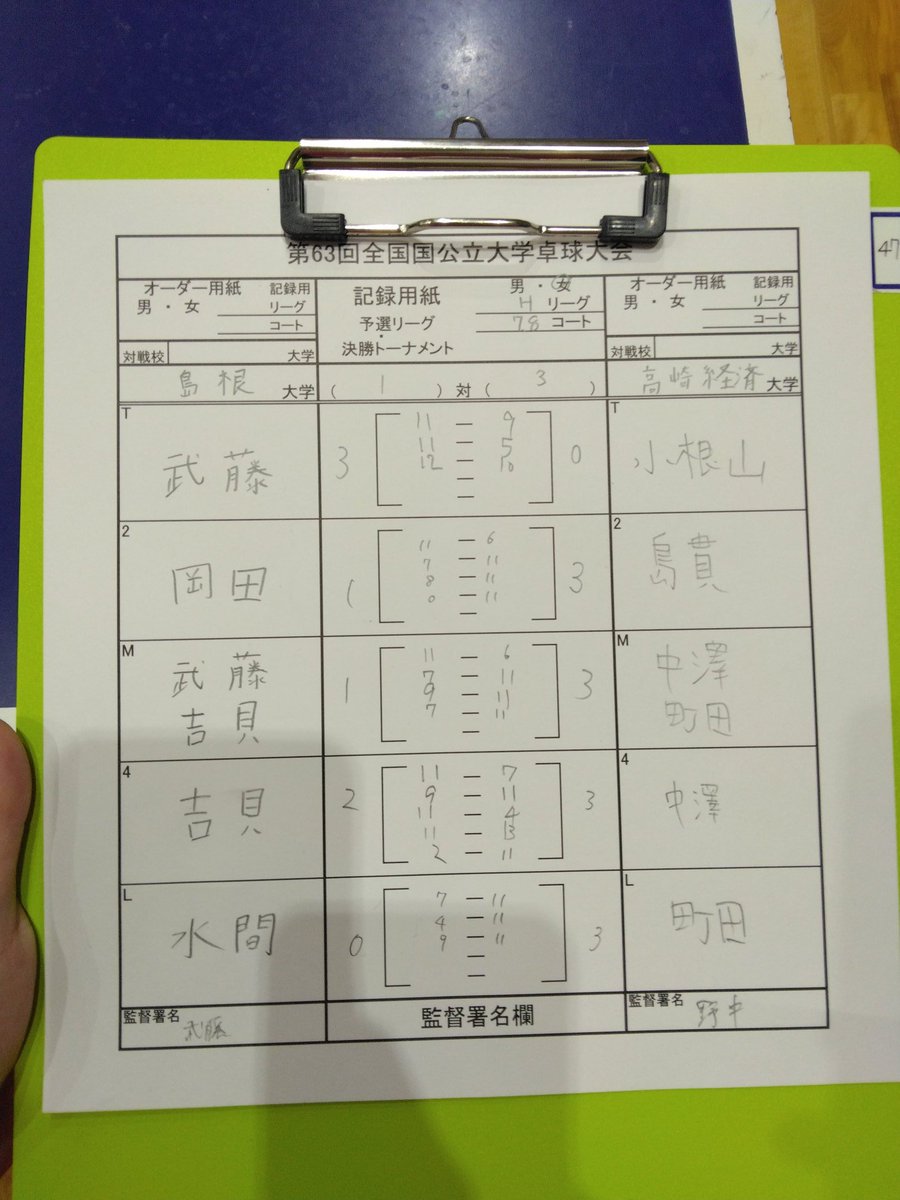 第63回全国国公立大学卓球大会
オーダー用紙 記録用
男 ・ 女 リーグ
コート
対戦校 大学
記録用紙 男 ・ 女
H リーグ
予選リーグ 78 コート
・
決勝トーナメント
オーダー用紙 記録用
男 ・ 女 リーグ
コート
対戦校 大学
島根 大学 ( 1 ) 対 ( 3 ) 高崎経済 大学
T 武藤 3 0 T 小根山
11 ー 9
11 ー 5
12 ー 10
ー
ー
2 岡田 1 3 2 島貫
11 ー 6
7 ー 11
8 ー 11
0 ー 11
ー
M 武藤 吉貝 1 3 M 中澤 町田
11 ー 6
7 ー 11
9 ー 11
7 ー 11
ー
4 吉貝 2 3 4 中澤
11 ー 7
9 ー 11
11 ー 4
11 ー 13
2 ー 11
L 水間 0 3 L 町田
7 ー 11
4 ー 11
9 ー 11
ー
ー
監督署名 武藤 監督署名欄 監督署名 野中
47